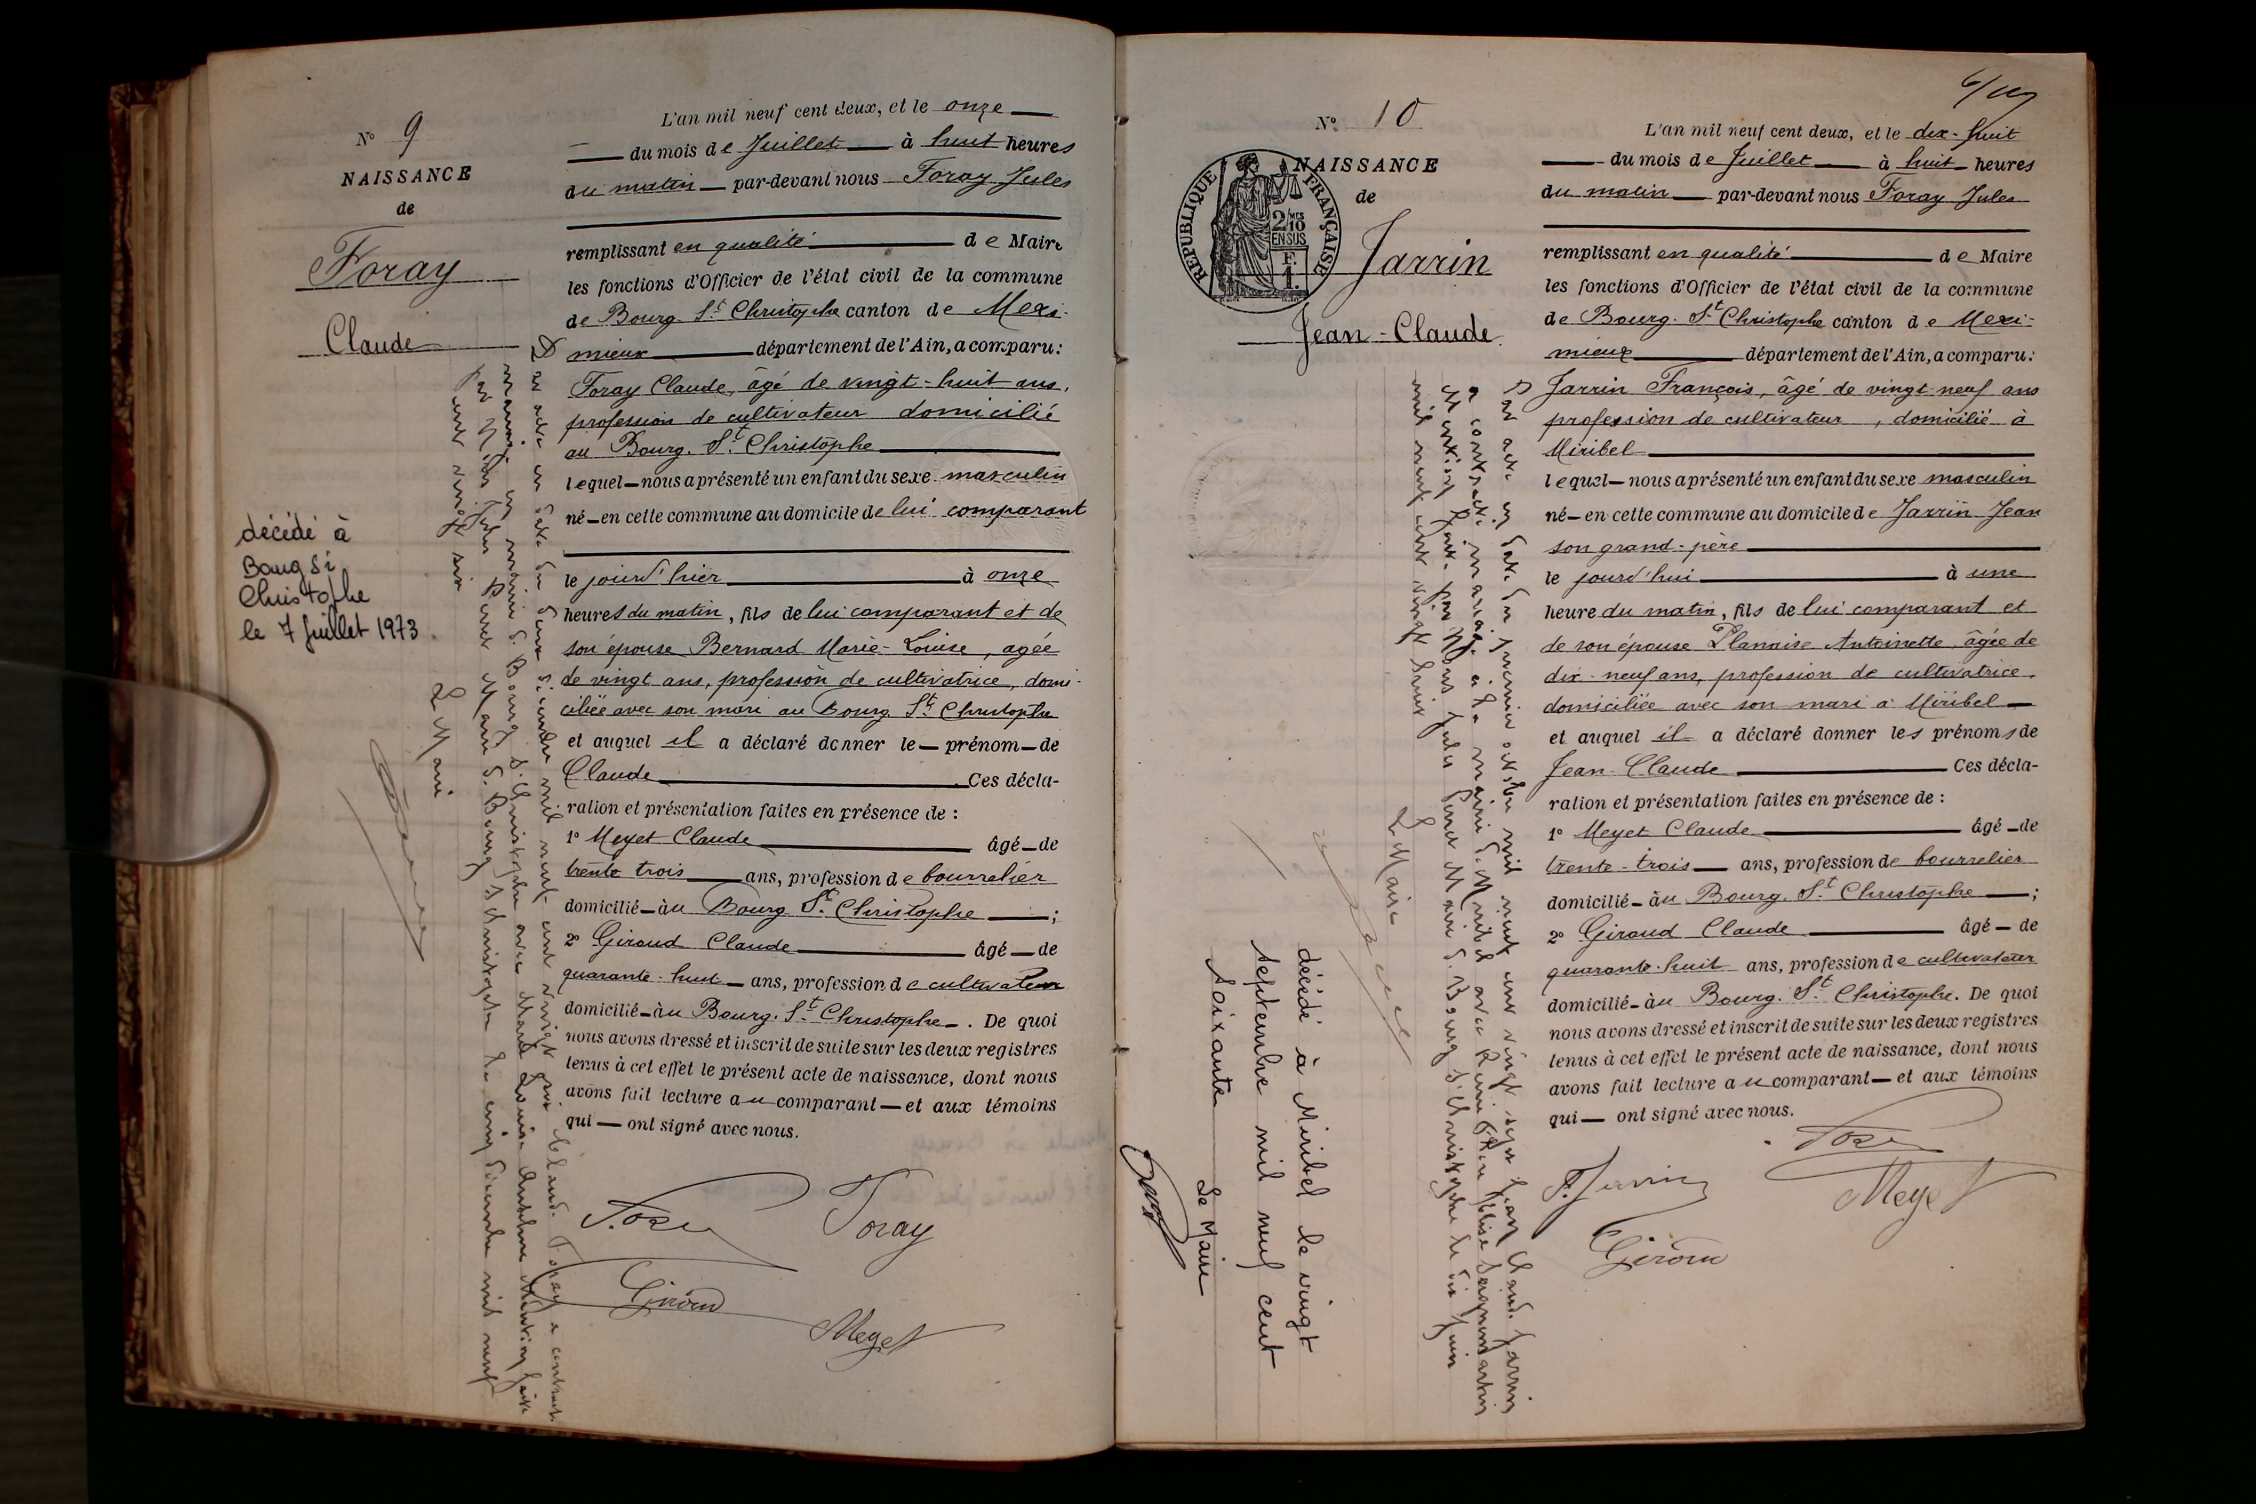 N° 9
NAISSANCE
de
Foray
Claude
L'an mil neuf cent deux, et le onze
du mois de Juillet à huit heures
du matin par-devant nous Foray Jules
remplissant en qualité de Maire
les fonctions d'Officier de l'état civil de la commune
de Bourg St Christophe canton de Mexi-
mieux département de l'Ain, a comparu :
Foray Claude, âgé de vingt-huit ans,
profession de cultivateur domicilié
au Bourg. St Christophe
lequel nous a présenté un enfant du sexe masculin
né en cette commune au domicile de lui comparant
le jourd'hier à onze
heures du matin, fils de lui comparant et de
son épouse Bernard Marie-Louise, agée
de vingt ans, profession de cultivatrice, domi-
ciliée avec son mari au Bourg St Christophe
et auquel il a déclaré donner le prénom de
Claude Ces décla-
ration et présentation faites en présence de :
1° Meyet Claude âgé de
trente trois ans, profession de bourrelier
domicilié au Bourg St Christophe ;
2° Giroud Claude âgé de
quarante-huit ans, profession de cultivateur
domicilié au Bourg. St Christophe. De quoi
nous avons dressé et inscrit de suite sur les deux registres
tenus à cet effet le présent acte de naissance, dont nous
avons fait lecture au comparant et aux témoins
qui ont signé avec nous.
Foray
Giroud
Meyet
décédé à
Bourg St
Christophe
le 7 Juillet 1973.
Par acte en date du deux décembre mil neuf cent vingt six Claude Foray a contracté
mariage en mairie de Bourg St Christophe avec Marie Louise Mention faite
par Nous Maire de Bourg St Christophe le cinq décembre mil neuf
cent vingt six
Le Maire
N° 10
NAISSANCE
de
RÉPUBLIQUE FRANÇAISE
2/10 MES
EN SUS
F.
1.
Jarrin
Jean-Claude.
L'an mil neuf cent deux, et le dix-huit
du mois de Juillet à huit heures
du matin par-devant nous Foray Jules
remplissant en qualité de Maire
les fonctions d'Officier de l'état civil de la commune
de Bourg. St Christophe canton de Mexi-
mieux département de l'Ain, a comparu :
Jarrin François, âgé de vingt-neuf ans
profession de cultivateur, domicilié à
Miribel
lequel nous a présenté un enfant du sexe masculin
né en cette commune au domicile de Jarrin Jean
son grand-père
le jourd'hui à une
heure du matin, fils de lui comparant et
de son épouse Planaise Antoinette âgée de
dix-neuf ans, profession de cultivatrice,
domiciliée avec son mari à Miribel
et auquel il a déclaré donner les prénoms de
Jean-Claude Ces décla-
ration et présentation faites en présence de :
1° Meyet Claude âgé de
trente-trois ans, profession de bourrelier
domicilié au Bourg. St Christophe ;
2° Giroud Claude âgé de
quarante-huit ans, profession de cultivateur
domicilié au Bourg. St Christophe. De quoi
nous avons dressé et inscrit de suite sur les deux registres
tenus à cet effet le présent acte de naissance, dont nous
avons fait lecture au comparant et aux témoins
qui ont signé avec nous.
F. Jarrin
Meyet
Giroud
Par acte en date du premier octobre mil neuf cent vingt sept Jean Claude Jarrin
a contracté mariage à la mairie de Miribel avec
Mention faite par Nous Jules Maire de Bourg St Christophe le dix Juin
mil neuf cent vingt huit
Le Maire
décédé à Miribel le vingt
septembre mil neuf cent
soixante
Le Maire